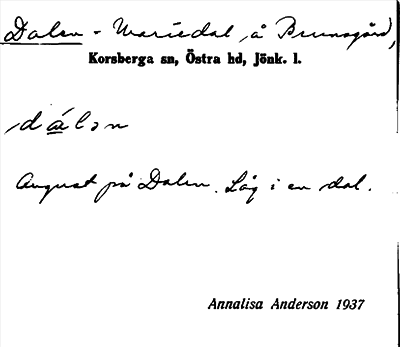 Dalen - Mariedal, å Brunsgård,
Korsberga sn, Östra hd, Jönk. l.
dálən
August på Dalen. Låg i en dal.
Annalisa Anderson 1937